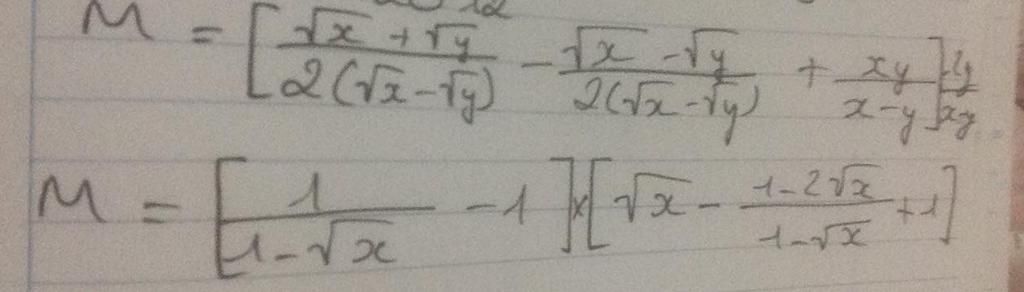 M = [ (√x + √y) / (2(√x - √y)) - (√x - √y) / (2(√x - √y)) + xy / (x - y) ]
M = [ 1 / (1 - √x) - 1 ] x [ √x - (1 - 2√x) / (1 - √x) + 1 ]